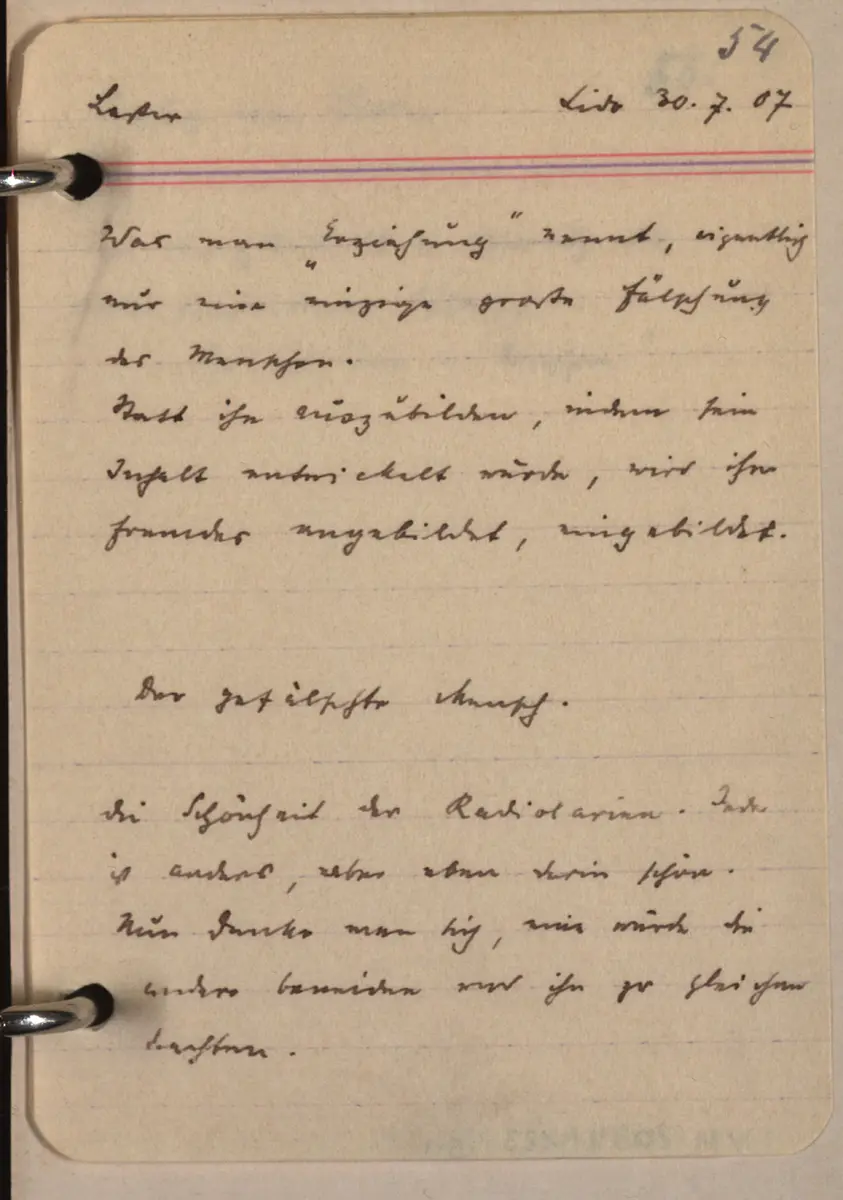 54
Laster Lido 30.7.07
Was man "Erziehung" nennt, eigentlich
nur eine einzige große Fälschung
des Menschen.
Statt ihn auszubilden, indem sein
Inhalt entwickelt würde, wird ihm
fremdes angebildet, eingebildet.
Der gefälschte Mensch.
Die Schönheit der Radiolarien. Jede
ist anders, aber eben darin schön.
Nun denke man sich, eine würde die
andere beneiden und ihr zu gleichen
trachten.